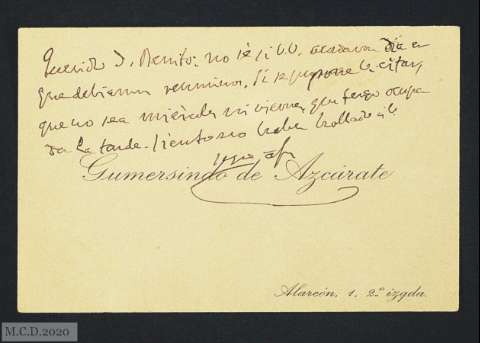 Querido D. Benito: no sé si V. V. acordaron día en
que debíamos reunirnos. Si se propone la citar,
que no sea miércoles ni viernes, que tengo ocupa
da la tarde. Siento no haber hallado á V.
suyo af.
Gumersindo de Azcárate
Alarcón, 1, 2.º izqda.
M.C.D.2020